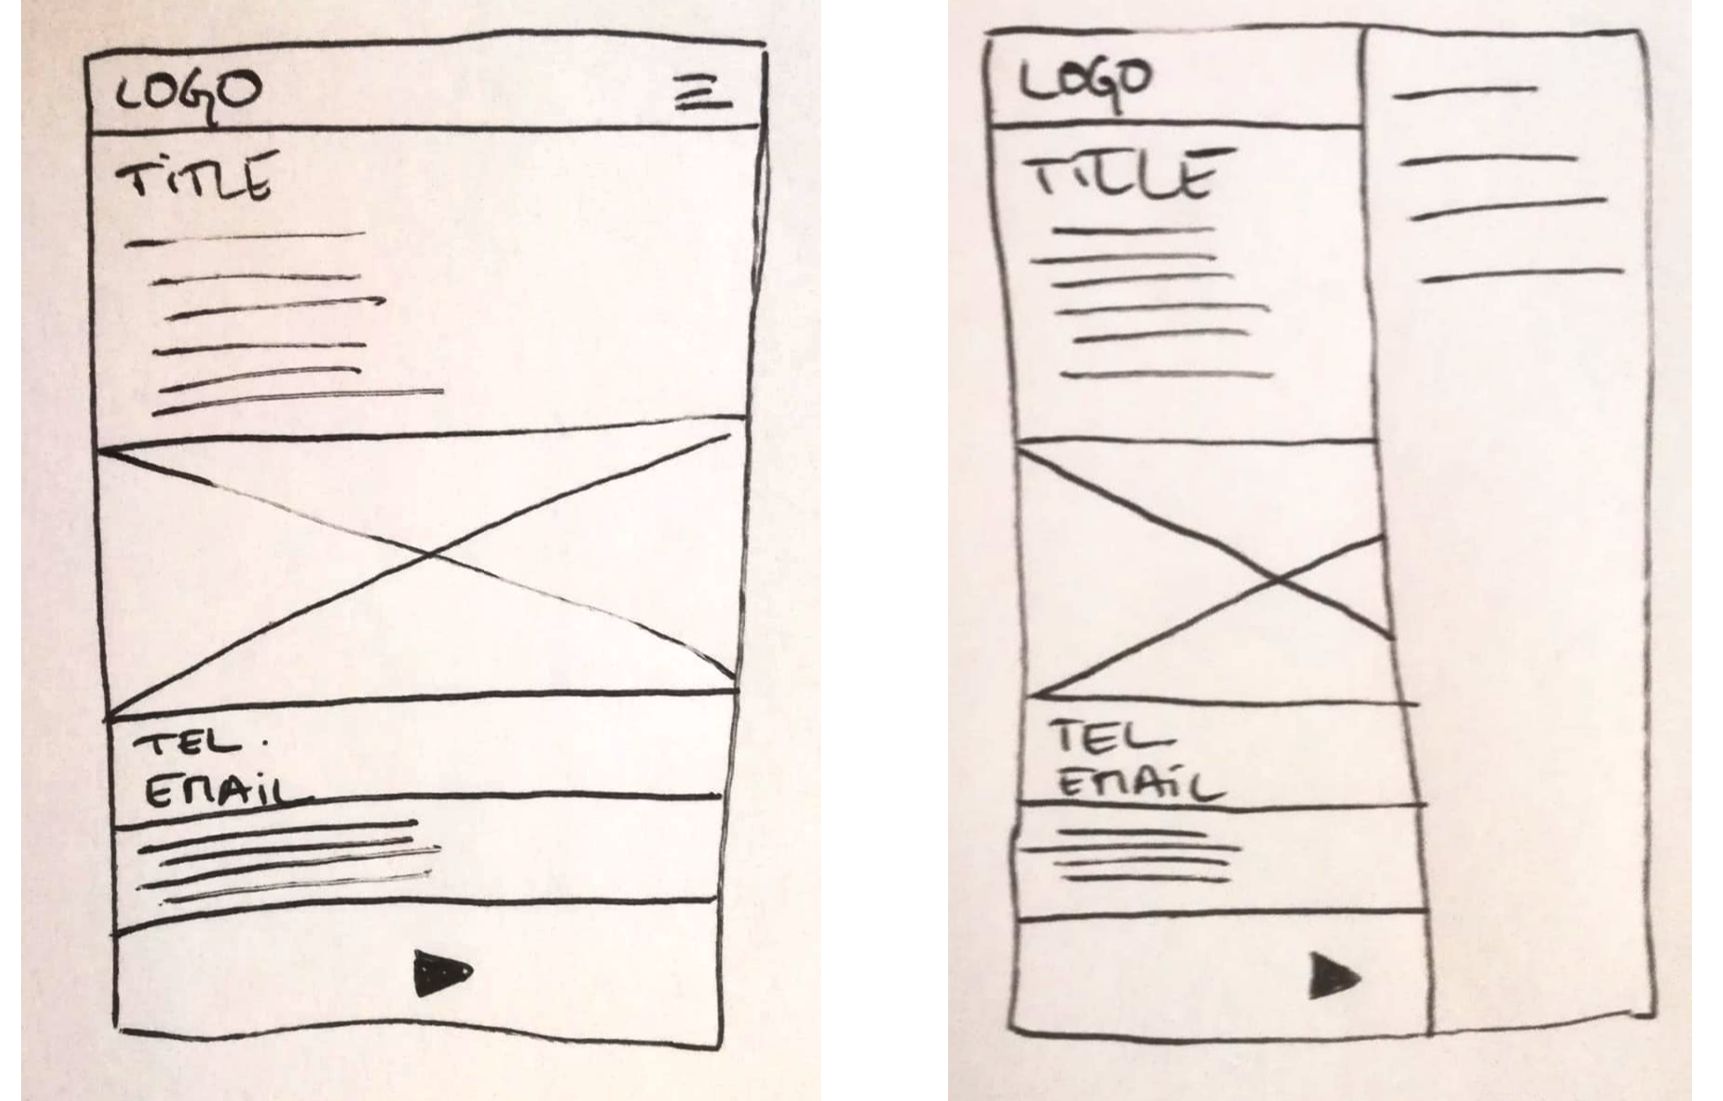 LOGO
TiTLE
TEL.
EMAiL
LOGO
TITLE
TEL
EMAiL